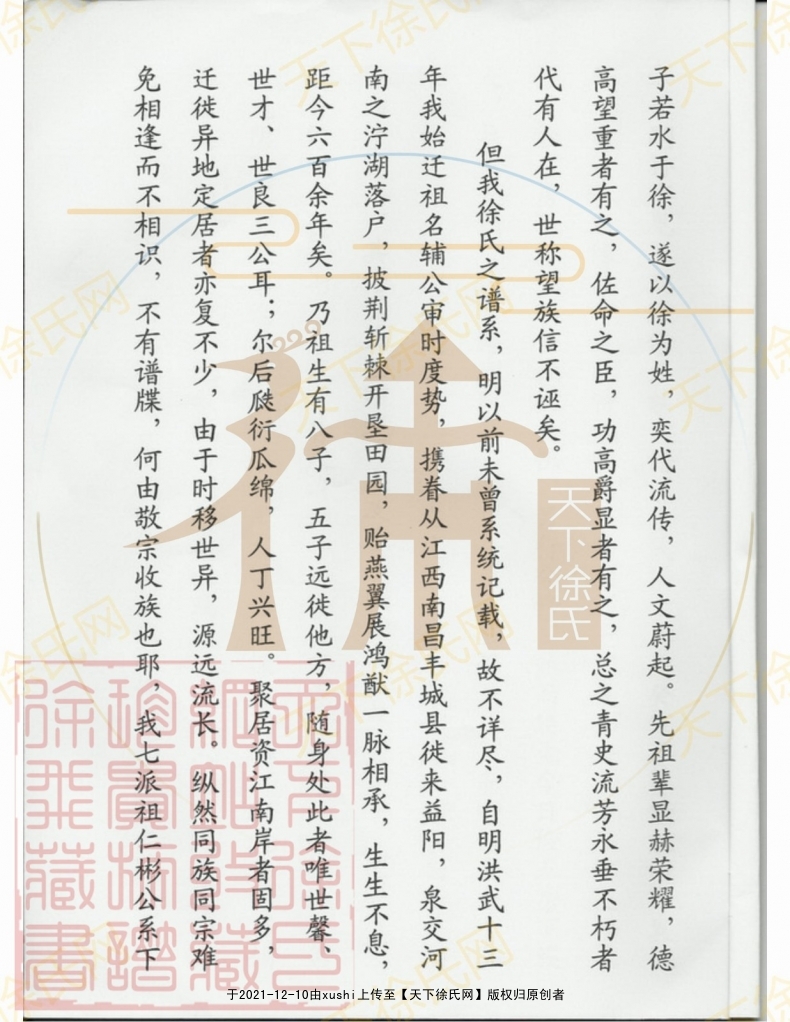 子若水于徐，遂以徐为姓，奕代流传，人文蔚起。先祖辈显赫荣耀，德
高望重者有之，佐命之臣，功高爵显者有之，总之青史流芳永垂不朽者
代有人在，世称望族信不诬矣。
但我徐氏之谱系，明以前未曾系统记载，故不详尽，自明洪武十三
年我始迁祖名辅公审时度势，携眷从江西南昌丰城县徙来益阳，泉交河
南之泞湖落户，披荆斩棘开垦田园，贻燕翼展鸿猷一脉相承，生生不息，
距今六百余年矣。乃祖生有八子，五子远徙他方，随身处此者唯世馨、
世才、世良三公耳；尔后瓞衍瓜绵，人丁兴旺。聚居资江南岸者固多，
迁徙异地定居者亦复不少，由于时移世异，源远流长。纵然同族同宗难
免相逢而不相识，不有谱牒，何由敬宗收族也耶，我七派祖仁彬公系下
天下徐氏
天下徐氏网
于2021-12-10由xushi上传至【天下徐氏网】版权归原创者